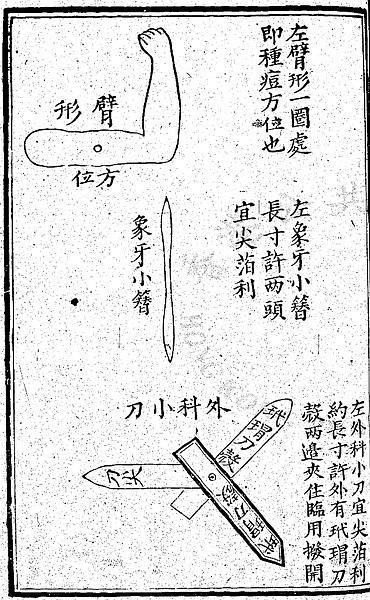 左臂形一圈處
即種痘方位也
臂形
方位
左象牙小簪
長寸許兩頭
宜尖萡利
象牙小簪
左外科小刀宜尖萡利
約長寸許外有玳瑁刀
殼兩邉夾住臨用撥開
外科小刀
玳瑁刀殼
尖刀
玳瑁刀殼